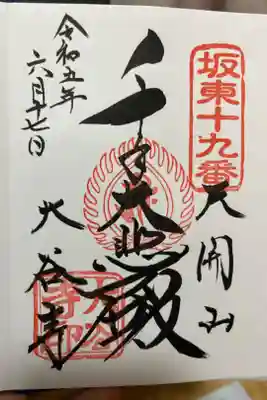 坂東十九番
天開山
千手大悲殿
大谷寺
令和五年
六月十七日